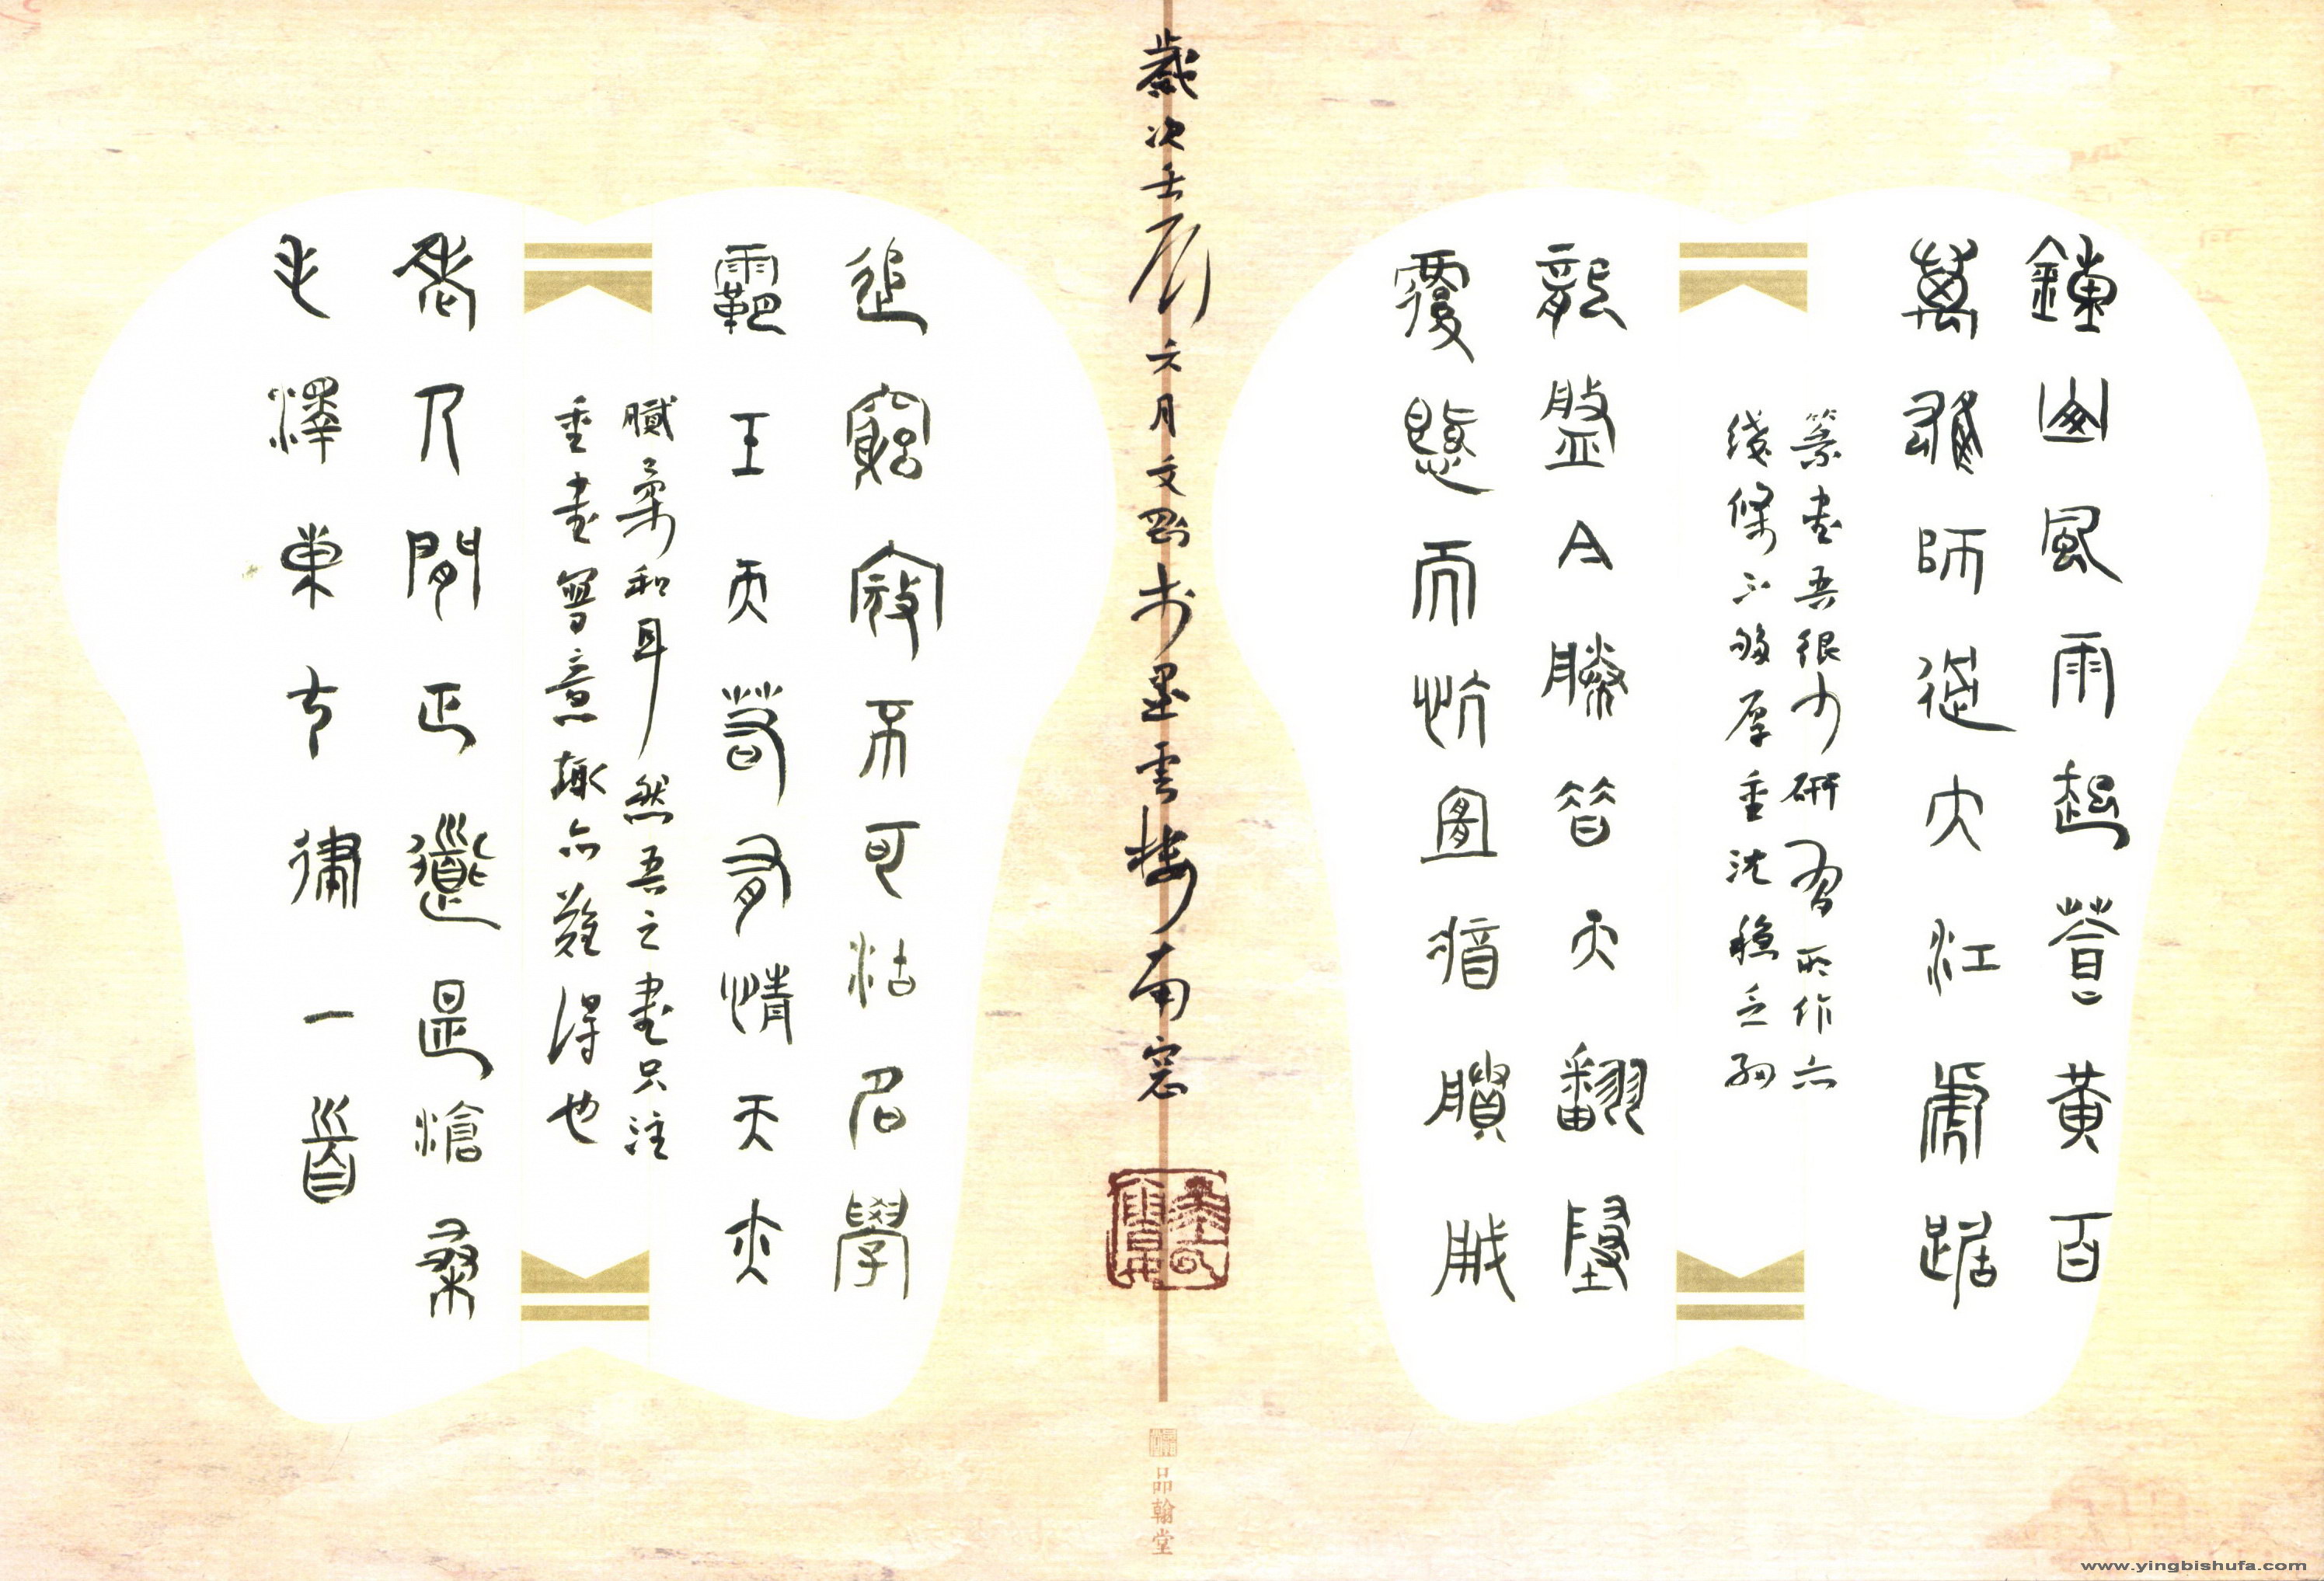 鍾山風雨起蒼黃百
萬雄師過大江虎踞
篆書吾很少研習所作亦
綫條不够厚重沈穩乏細
龍盤今勝昔天翻地
覆慨而慷宜將剩勇
歲次壬辰六月文剛於墨雲樓南窓
品翰堂
追窮寇不可沽名學
霸王天若有情天亦
膩柔和耳然吾之書只注
重書寫意趣亦難得也
老人間正道是滄桑
毛澤東七律一首
www.yingbishufa.com